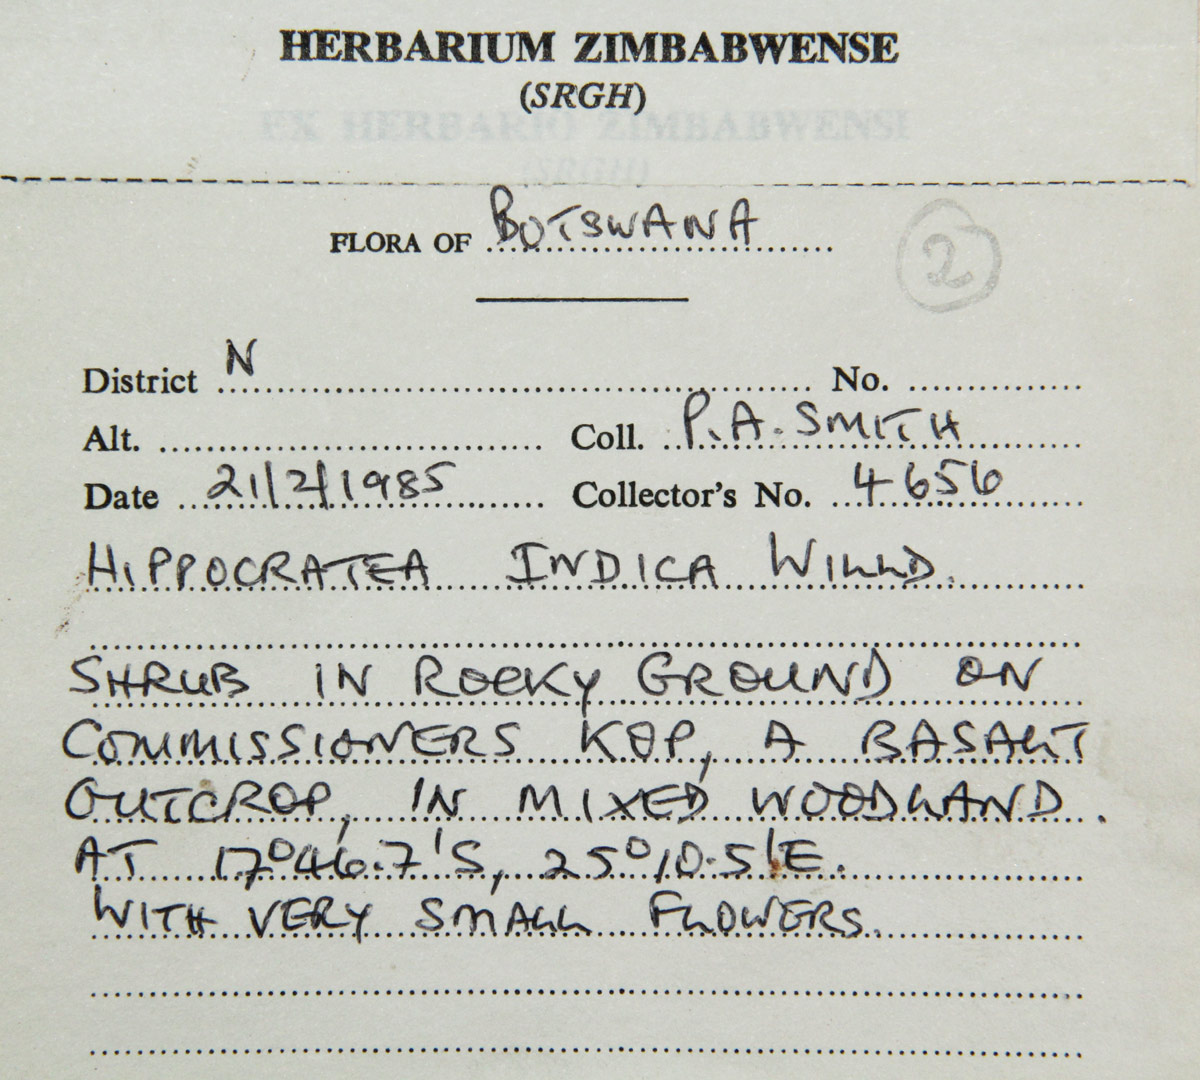 HERBARIUM ZIMBABWENSE
(SRGH)
EX HERBARIO ZIMBABWENSI
(SRGH)
FLORA OF BOTSWANA
2
District N No.
Alt. Coll. P.A. SMITH
Date 21/2/1985 Collector's No. 4656
HIPPOCRATEA INDICA WILLD.
SHRUB IN ROCKY GROUND ON
COMMISSIONERS KOP, A BASALT
OUTCROP, IN MIXED WOODLAND.
AT 17°46.7'S, 25°10.5'E.
WITH VERY SMALL FLOWERS.